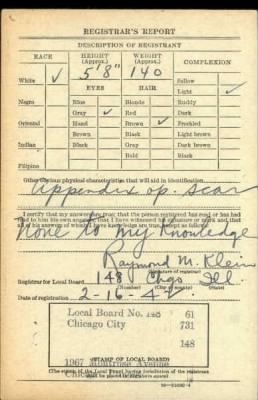 REGISTRAR'S REPORT
DESCRIPTION OF REGISTRANT
RACE HEIGHT (Approx.) WEIGHT (Approx.) COMPLEXION
White ✓ 5'8" 140 Sallow
EYES HAIR Light ✓
Negro Blue Blonde Ruddy
Gray ✓ Red Dark
Oriental Hazel Brown ✓ Freckled
Brown Black Light brown
Indian Black Gray Dark brown
Bald Black
Filipino
Other obvious physical characteristics that will aid in identification
Appendix op. scar
I certify that my answers are true; that the person registered has read or has had
read to him his own answers; that I have witnessed his signature or mark and that
all of his answers of which I have knowledge are true, except as follows:
None to my knowledge
Raymond M. Klein
(Signature of registrar)
Registrar for Local Board 148 Chgo Ill.
Date of registration 2-16-42
Local Board No. 148 61
Chicago City 731
148
1967 Avenue
Chicago
(STAMP OF LOCAL BOARD)
(The stamp of the Local Board having jurisdiction of the registrant
shall be placed in the above space)